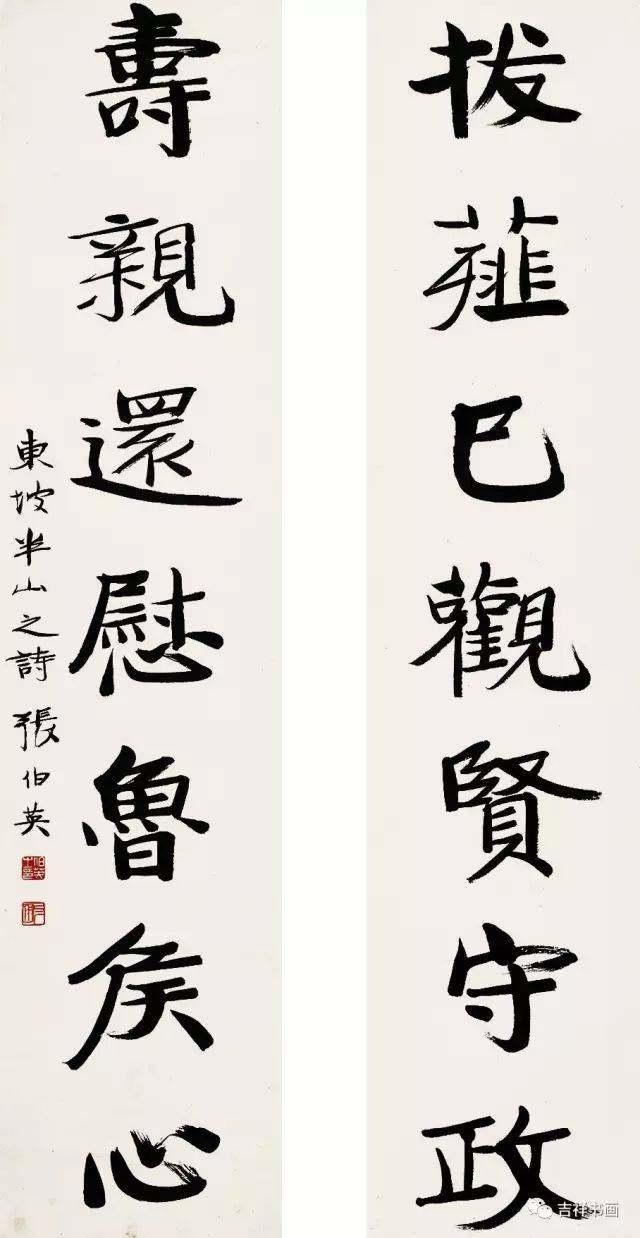 拔薤已觀賢守政
壽親還慰魯侯心
東坡半山之詩 張伯英
吉祥书画